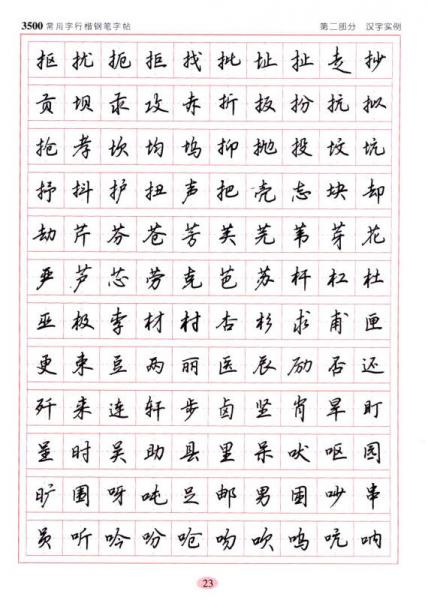 3500常用字行楷钢笔字帖 第二部分 汉字实例
抠扰扼拒找批址扯走抄
贡坝汞攻赤折扳扮抗拟
抢孝坎均坞抑抛投坟坑
抒抖护扭声把壳志块却
劫芹芬苍芳芙芜苇芽花
严芦芯劳克芭苏杆杠杜
巫极李材村杏杉求甫匣
更束豆两丽医辰励否还
歼来连轩步卤坚肖旱盯
呈时吴助县里呆吠呕园
旷围呀吨足邮男困吵串
员听吟吩呛吻吹呜吭呐
23